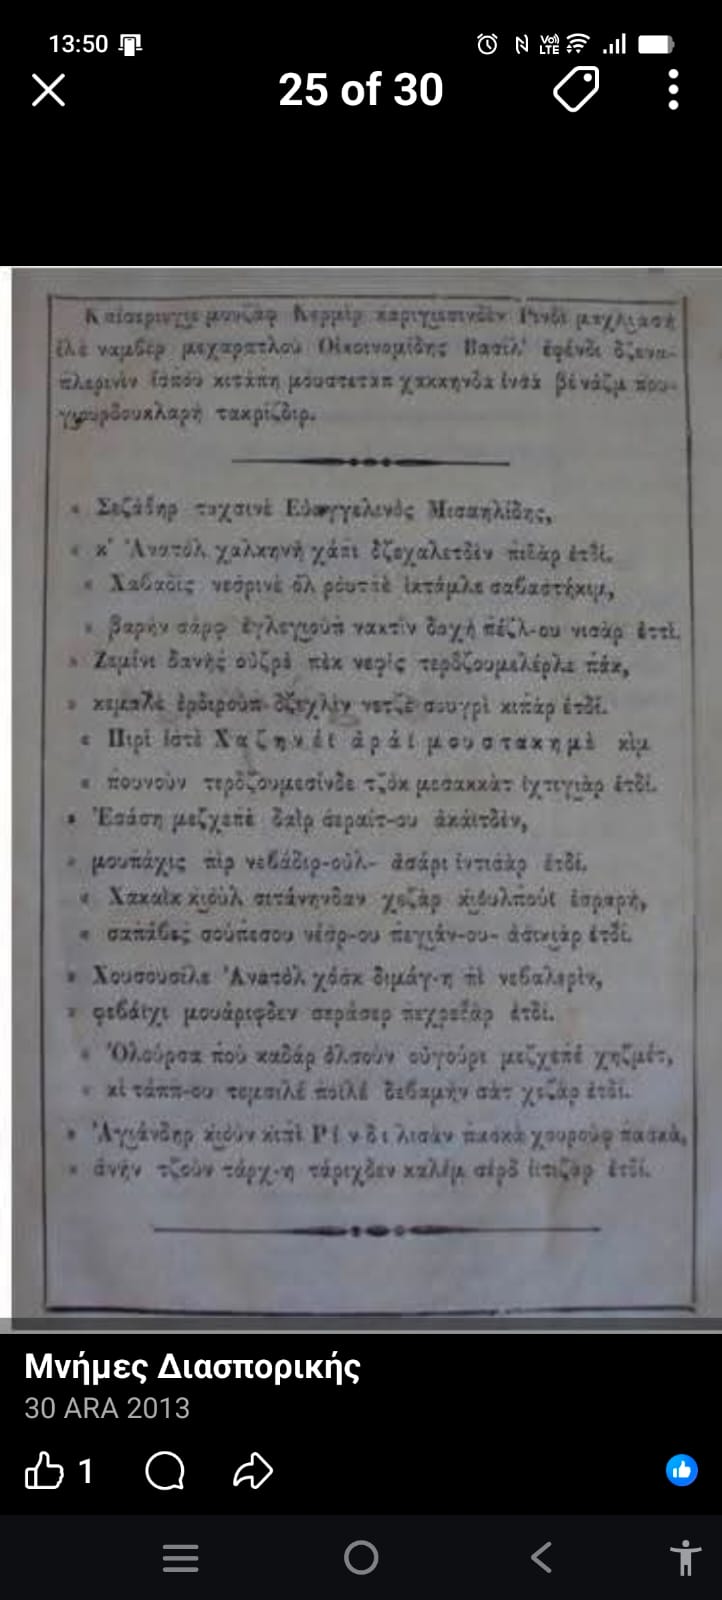 13:50
25 of 30
Καϊσεριγγιε μουζάφ Κερμὶρ καριγιεσινδὲν Ρινδὶ μαχλασὴ
ἰλὲ ναμβὲρ μεχαρετλοὺ Οἰκονομίδης Βασὶλ' ἐφένδι δζενα-
πλερινὶν ἰσποὺ κιτάπη μούστεταπ χακκηνδὰ ἰνσὰ βὲ νάζμ που-
γιουρδουκλαρὴ τακρὶζδιρ.
« Σεζάδηρ ταχσινὲ Εὐαγγελινὸς Μισαηλίδης,
« κ' Ἀνατὸλ χαλκηνὴ χάπι δζεχαλετδὲν πιδὰρ ἐτδί.
« νεσρινὲ ὀλ ἰκτάμλε σαβαστήκιμ,
« βαρὴν σάρφ ἐγλεγιοὺπ νακτὶν δαχὴ πέζλ-ου νισὰρ ἐττί.
« Ζεμίνι δανὴς οὐζρὲ πὲκ νεφὶς τερδζουμελέρλε πάκ,
« κεμαλὲ ἐρδιροὺπ δζεχλὶν νετζὲ σουγρὶ κιπὰρ ἐτδί.
« Πιρὶ ἰστὲ Χαζηνέϊ ἀράϊ μουστακημὲ κὶμ
« πουνοὺν τερδζουμεσίνδε τζὸκ μεσακκὰτ ἰχτιγιὰρ ἐτδί.
« Ἐσάση μεζχεπὲ δαῒρ σεραίτ-ου ἀκαίτδὲν,
« μουπάχις πὶρ νεβάδιρ-οὺλ- ἀσάρι ἰντισὰρ ἐτδί.
« Χακαῒκ κιοὺλ σιτάνηνδαν χεζὰρ κιουλποὺϊ ἐσραρή,
« σαπάβες σούπεσου νέσρ-ου πεγιάν-ου- ἀσικιὰρ ἐτδί.
« Χουσουσίλε Ἀνατὸλ χόσκ διμάγ-η πὶ νεβαλερὶν,
« φεβάϊχι μουάριφδεν σεράσερ πεχρεδὰρ ἐτδί.
« Ὀλούρσα ποὺ καδὰρ ὀλσοὺν οὐγούρι μεζχεπὲ χηζμέτ,
« κὶ τάππ-ου τεμσιλὲ ποϊλὲ δεβαμὴν σὰτ χεζὰρ ἐτδί.
« Ἀγιάνδηρ κιοὺν κιπὶ Ρίνδι λισὰν πασκὰ χουροὺφ πασκά,
« ἀνὴν τζοὺν τάρχ-η τάριχδεν καλὲμ σέρδ ἰπτιζὰρ ἐτδί.
Μνήμες Διασπορικής
30 ARA 2013
1